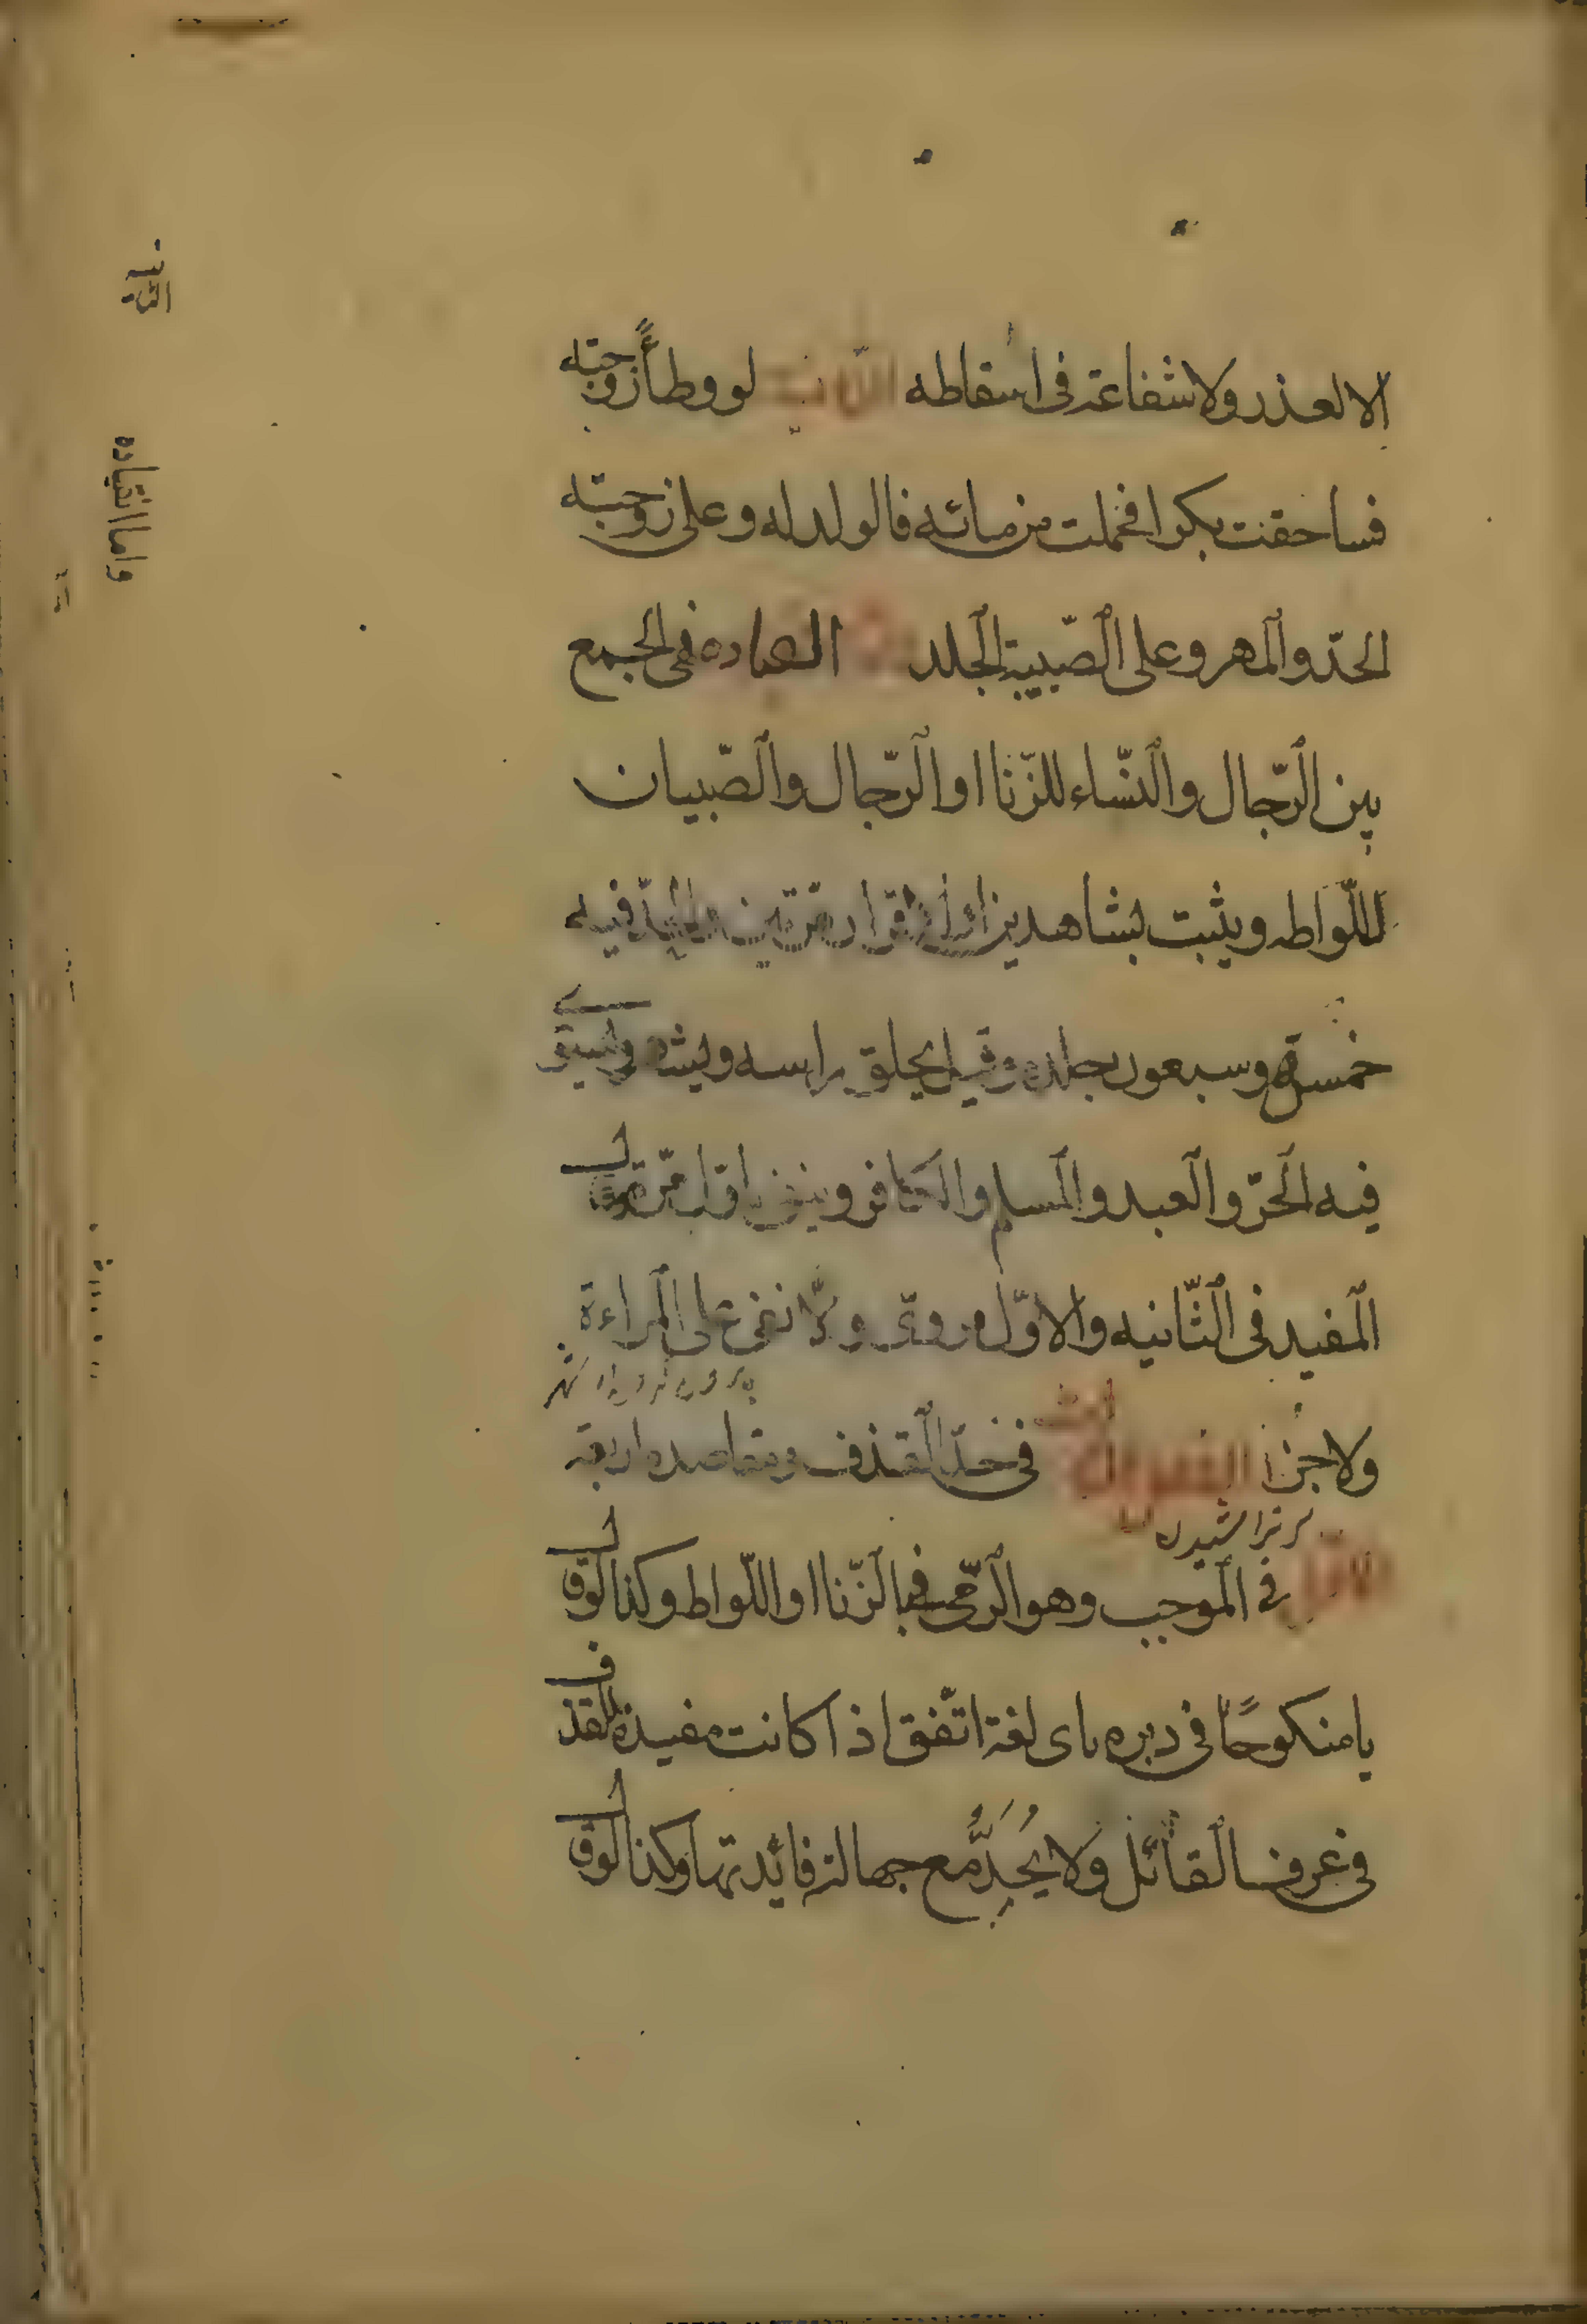 الا لعذر ولا شفاعة فى اسقاطه لو وطأ زوجته
فساحقت بكرا فحملت من مائه فالولد له وعلى زوجته
الحدّ والمهر وعلى الصّبية الجلد القياده فهى الجمع
بين الرّجال والنّساء للزّنا او الرّجال والصّبيان
للّواط ويثبت بشاهدين او الاقرار مرّتين والحدّ فيه
خمسة وسبعون جلده وقيل يحلق راسه ويشهر ويستوى
فيه الحرّ والعبد والمسلم والكافر وينفى باوّل مرّة وقال
المفيد فى الثّانيه والاوّل مروىّ ولا نفى على المراءة
بيرون كردن از شهر
ولا جزّ الفصل الثالث فى حدّ القذف ومقاصده اربعة
سر تراشيدن
الاوّل فى الموجب وهو الرّمى بالزّنا او اللّواط وكذا لو قال
يا منكوحًا فى دبره باى لغة اتّفق اذا كانت مفيدة للقذف
فى عرف القائل ولا يُحَدُّ مع جهالة فائدتها وكذا لو قال
الثانية
واما القياده